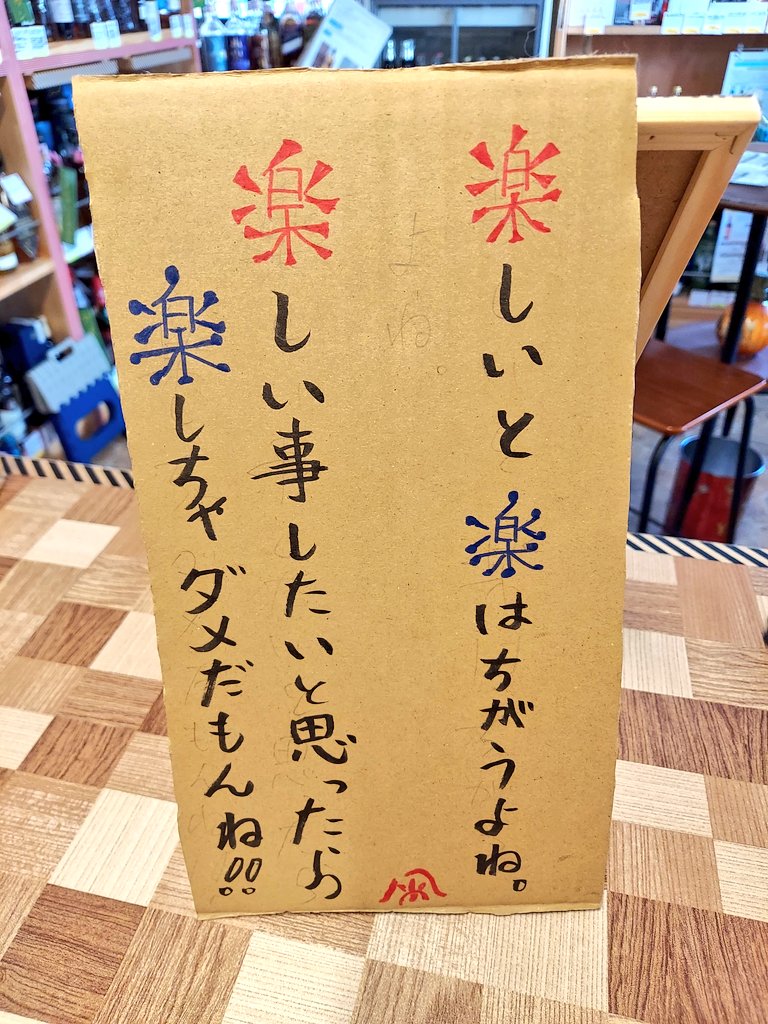 楽しいと楽はちがうよね。
よね。
楽しい事したいと思ったら
楽しちゃダメだもんね!!